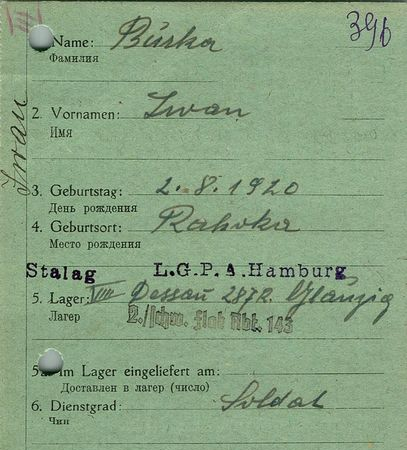 39b
Name: Burka
Фамилия
2. Vornamen: Iwan
Имя
Iwan
3. Geburtstag: 2.8.1920
День рождения
4. Geburtsort:
Место рождения
Stalag L.G.P.A. Hamburg
5. Lager: Dessau
Лагер
2./schw. Flak Abt. 143
5a. Im Lager eingeliefert am:
Доставлен в лагер (число)
6. Dienstgrad: Soldat
Чин